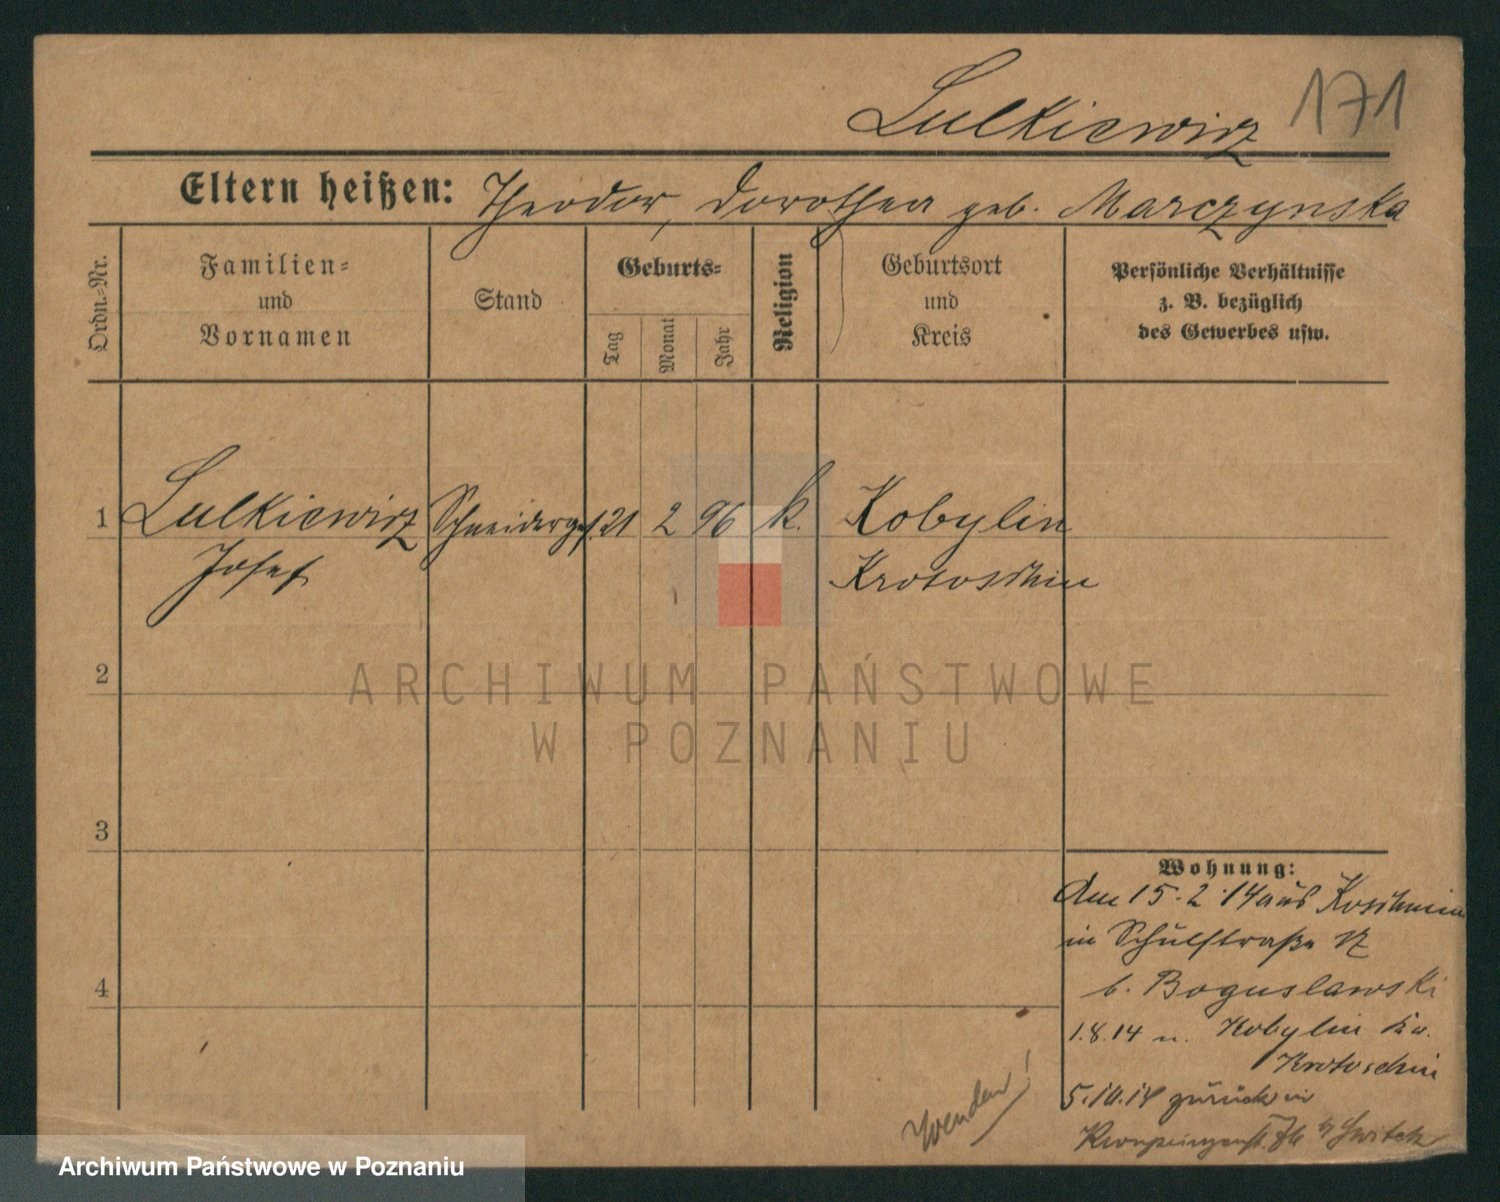 Lulkiewicz 171
Eltern heißen: Theodor, Dorothea geb. Marczynska
Ordn.-Nr.
Familien-
und
Vornamen
Stand
Geburts-
Tag
Monat
Jahr
Religion
Geburtsort
und
Kreis
Persönliche Verhältnisse
z. B. bezüglich
des Gewerbes usw.
1 Lulkiewicz Schneiderges. 21 2 96 k. Kobylin
Josef Krotoschin
2
3
4
Wohnung:
Am 15.2.14 aus Koschmin
in Schulstraße
b. Boguslawski
1.8.14 n. Kobylin Kr.
Krotoschin
5.10.14 zurück in
b/ Switek
Wenden!
ARCHIWUM PAŃSTWOWE
W POZNANIU
Archiwum Państwowe w Poznaniu